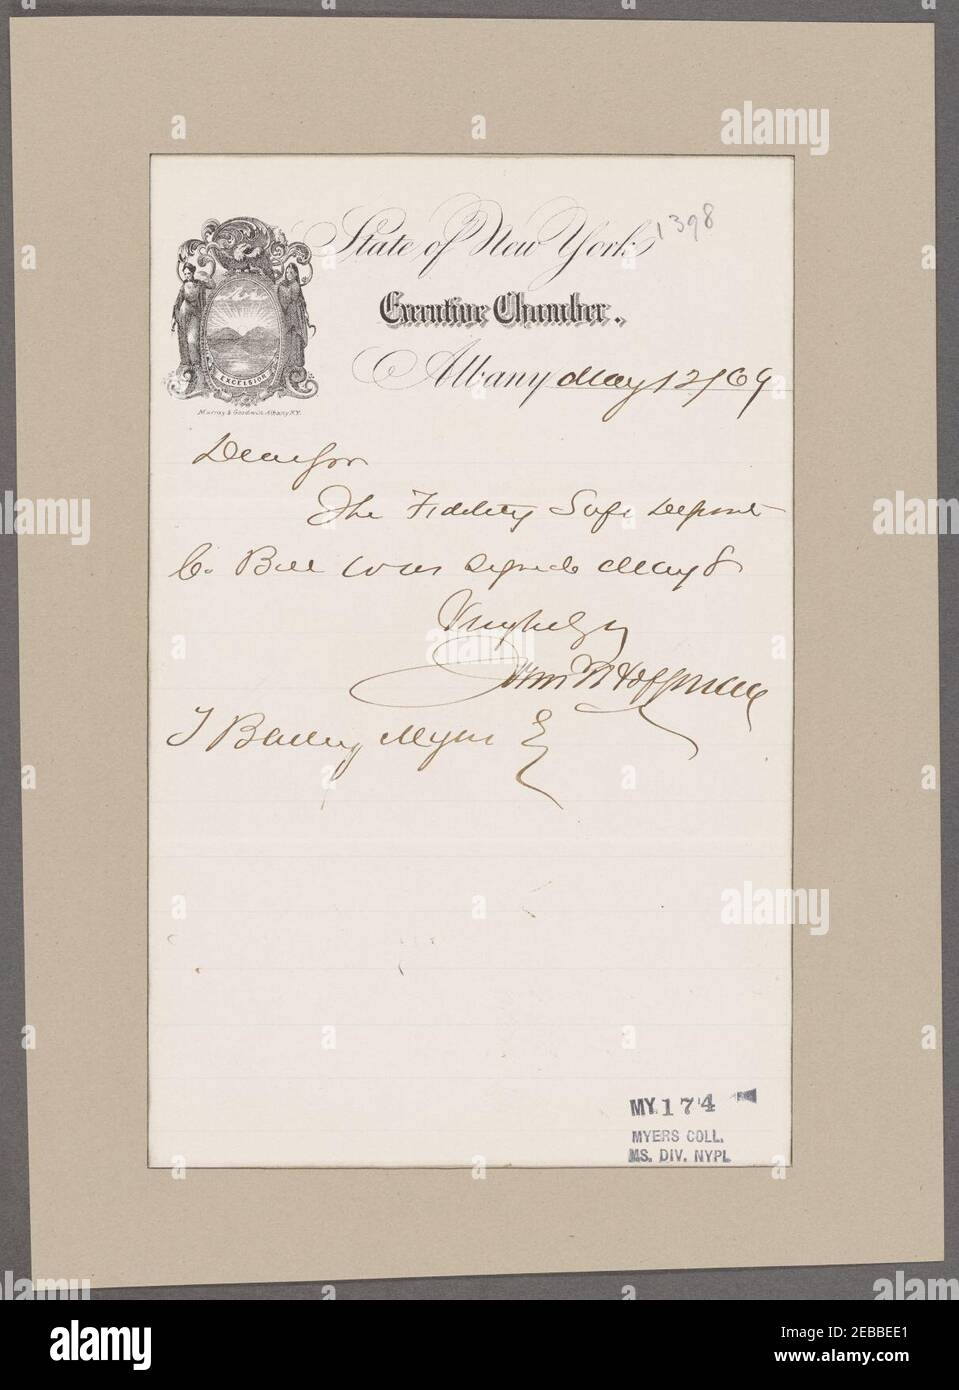 State of New York
1398
Executive Chamber.
Albany May 12/69
EXCELSIOR
Murray & Goodwin, Albany N.Y.
Dear Sir
The Fidelity Safe Deposit
Co. Bill was signed May 8
Very truly yr
John T Hoffman
T Bailey Myers Esq
MY.174
MYERS COLL.
MS. DIV. NYPL
alamy
alamy
alamy
alamy
alamy
alamy
Image ID: 2EBBEE1
www.alamy.com